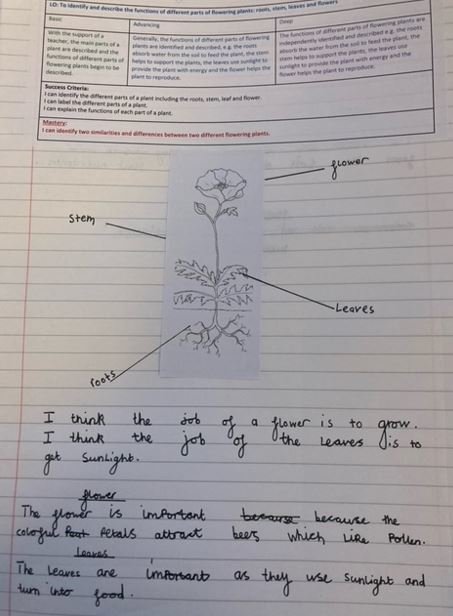 LO: To identify and describe the functions of different parts of flowering plants: roots, stem, leaves and flowers
Basic
Advancing
Deep
With the support of a
teacher, the main parts of a
plant are described and the
functions of different parts of
flowering plants begin to be
described.
Generally, the functions of different parts of flowering
plants are identified and described, e.g. the roots
absorb water from the soil to feed the plant, the stem
helps to support the plants, the leaves use sunlight to
provide the plant with energy and the flower helps the
plant to reproduce.
The functions of different parts of flowering plants are
independently identified and described e.g. the roots
absorb the water from the soil to feed the plant, the
stem helps to support plants, the leaves use
sunlight to provide the plant with energy and the
flower helps the plant to reproduce.
Success Criteria:
I can identify the different parts of a plant including the roots, stem, leaf and flower.
I can label the different parts of a plant.
I can explain the functions of each part of a plant.
Mastery:
I can identify two similarities and differences between two different flowering plants.
flower
Stem
Leaves
roots
I think the job of a flower is to grow.
I think the job of the leaves is to
get sunlight.
flower
The flower is important because because the
colorful petals attract bees which like Pollen.
Leaves
The leaves are important as they use sunlight and
turn into food.